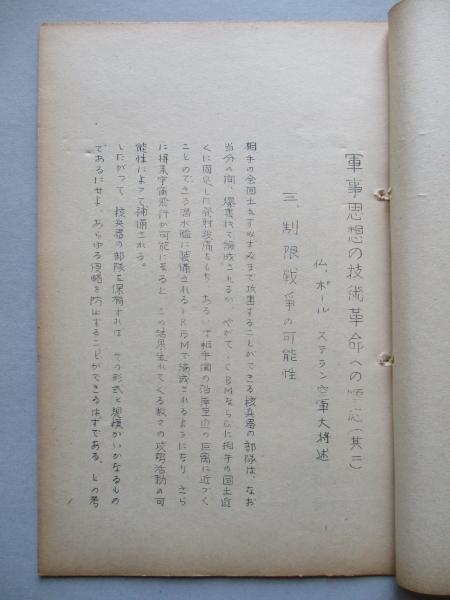 軍事思想の技術革命への順応(其二)
仏、ポール ステラン空軍大将述
三、制限戦争の可能性
相手の全国土をすみずみまで攻撃することができる核兵器の部隊は、なお
当分の間、爆撃機で編成されるが、やがてICBMならびに相手の国土近
くに固定した発射設備をもち、あるいは相手国の沿岸至近の距離に近づく
ことのできる潜水艦に装備されるIRBMで編成されるようになり、さら
に将来宇宙飛行が可能になると、この結果生れてくる数々の攻撃活動の可
能性によって補備される。
したがって、核兵器の部隊を保有すれば、その形式と規模がいかなるもの
であるにせよ、あらゆる侵略を防止することができるはずである、との考